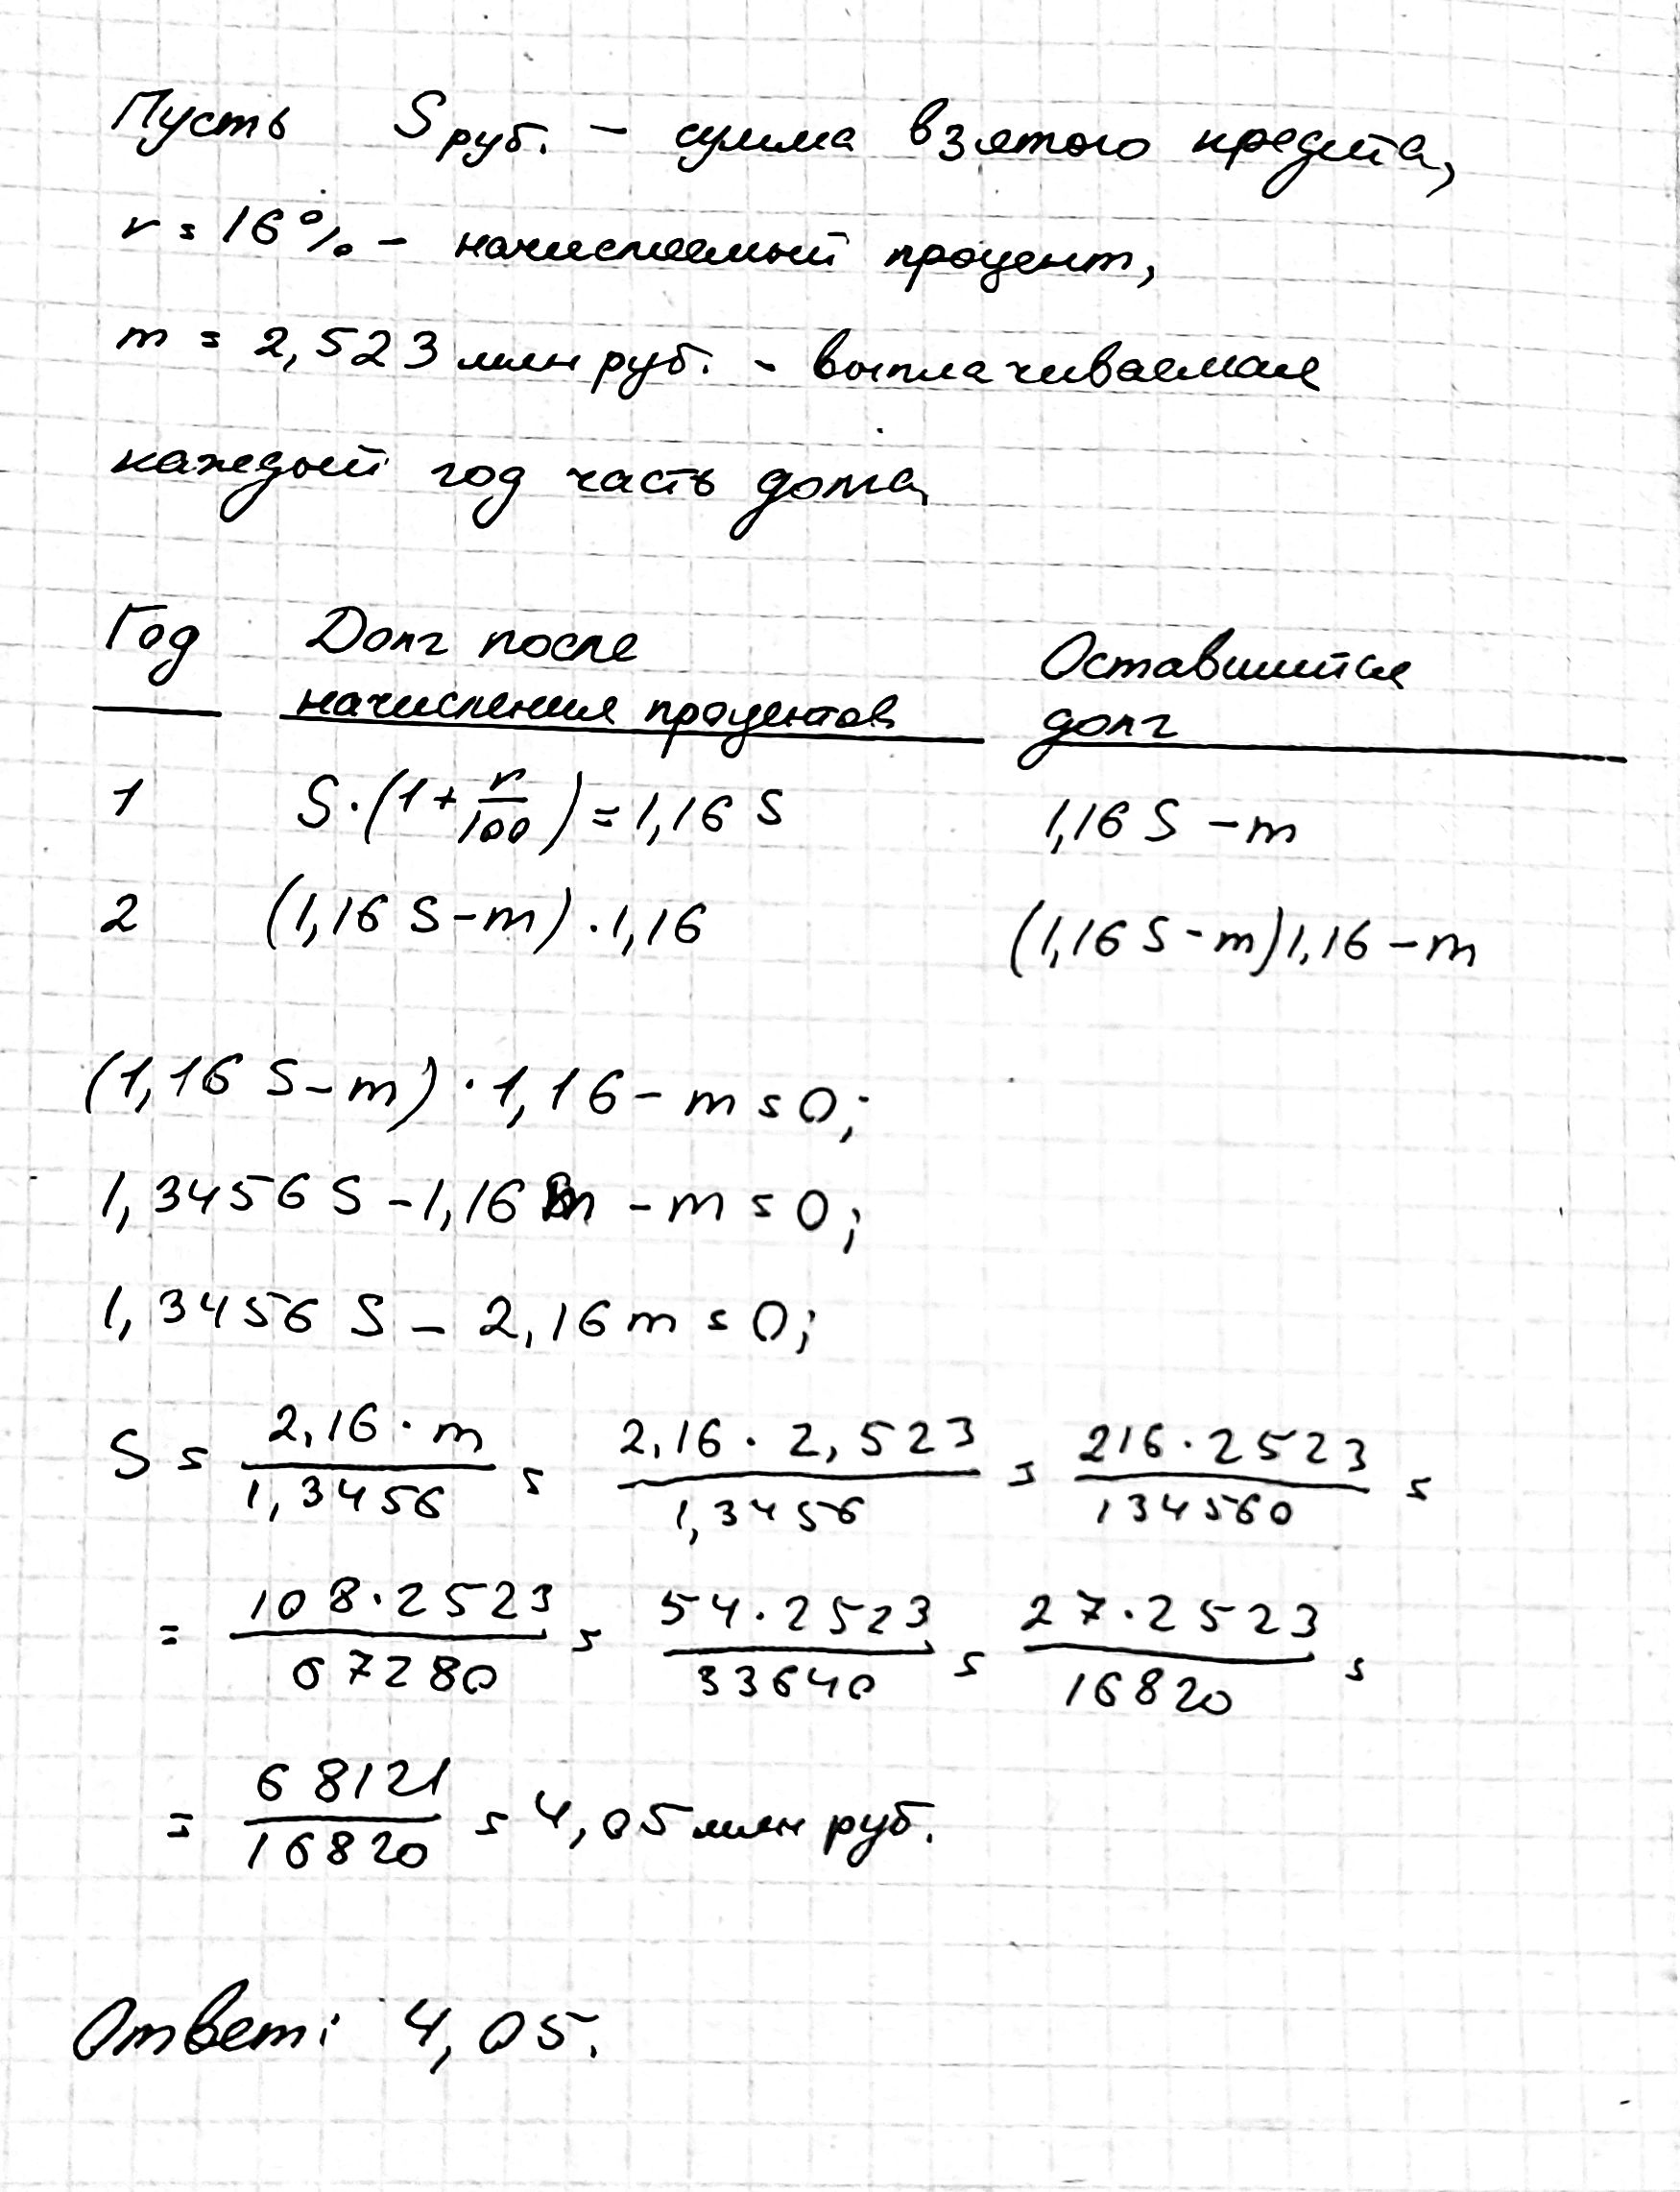 Пусть S руб. – сумма взятого кредита,
r = 16% – начисляемый процент,
m = 2,523 млн руб. - выплачиваемая
каждый год часть долга,
Год Долг после начисления процентов Оставшийся долг
1 S·(1+r/100) = 1,16 S 1,16 S – m
2 (1,16 S – m)·1,16 (1,16 S - m)1,16 – m
(1,16 S – m)·1,16 – m = 0;
1,3456 S – 1,16 m – m = 0;
1,3456 S – 2,16 m = 0;
S = 2,16·m/1,3456 = 2,16·2,523/1,3456 = 216·2523/134560 =
= 108·2523/67280 = 54·2523/33640 = 27·2523/16820 =
= 68121/16820 = 4,05 млн руб.
Ответ: 4,05.